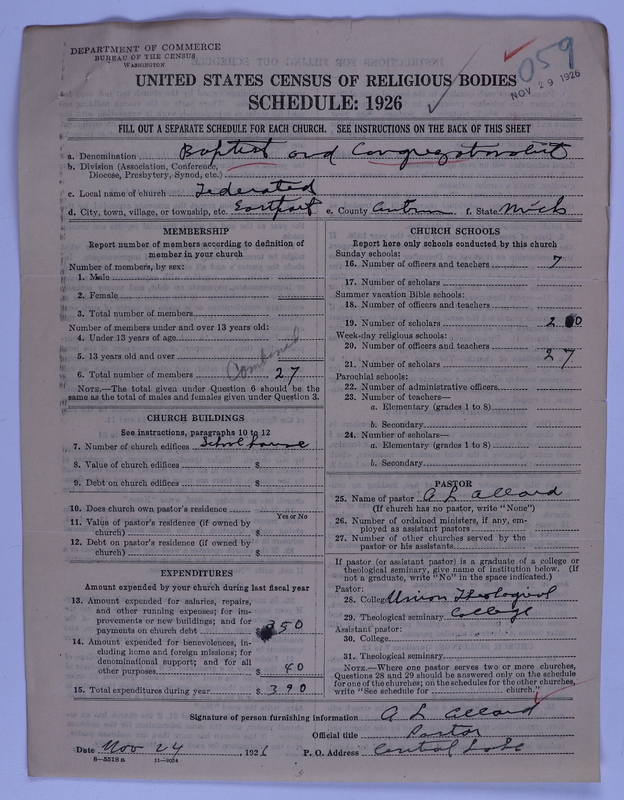 DEPARTMENT OF COMMERCE
BUREAU OF THE CENSUS
WASHINGTON
059
NOV 29 1926
UNITED STATES CENSUS OF RELIGIOUS BODIES
SCHEDULE: 1926
FILL OUT A SEPARATE SCHEDULE FOR EACH CHURCH. SEE INSTRUCTIONS ON THE BACK OF THIS SHEET
a. Denomination Baptist and Congregationalist
b. Division (Association, Conference, Diocese, Presbytery, Synod, etc.)
c. Local name of church Federated
d. City, town, village, or township, etc. Eastport e. County Antrim f. State Mich
MEMBERSHIP
Report number of members according to definition of
member in your church
Number of members, by sex:
1. Male
2. Female
3. Total number of members
Number of members under and over 13 years old:
4. Under 13 years of age
5. 13 years old and over
Combined
6. Total number of members 27
NOTE.—The total given under Question 6 should be the
same as the total of males and females given under Question 3.
CHURCH BUILDINGS
See instructions, paragraphs 10 to 12
7. Number of church edifices School house
8. Value of church edifices $
9. Debt on church edifices $
10. Does church own pastor's residence
Yes or No
11. Value of pastor's residence (if owned by
church) $
12. Debt on pastor's residence (if owned by
church) $
EXPENDITURES
Amount expended by your church during last fiscal year
13. Amount expended for salaries, repairs,
and other running expenses; for im-
provements or new buildings; and for
payments on church debt $ 350
14. Amount expended for benevolences, in-
cluding home and foreign missions; for
denominational support; and for all
other purposes $ 40
15. Total expenditures during year $ 390
CHURCH SCHOOLS
Report here only schools conducted by this church
Sunday schools:
16. Number of officers and teachers 7
17. Number of scholars
Summer vacation Bible schools:
18. Number of officers and teachers
19. Number of scholars
Week-day religious schools:
20. Number of officers and teachers
27
21. Number of scholars
Parochial schools:
22. Number of administrative officers
23. Number of teachers—
a. Elementary (grades 1 to 8)
b. Secondary
24. Number of scholars—
a. Elementary (grades 1 to 8)
b. Secondary
PASTOR
25. Name of pastor A L Allard
(If church has no pastor, write "None")
26. Number of ordained ministers, if any, em-
ployed as assistant pastors
27. Number of other churches served by the
pastor or his assistants
If pastor (or assistant pastor) is a graduate of a college or
theological seminary, give name of institution below. (If
not a graduate, write "No" in the space indicated.)
Pastor:
28. College Union Theological
29. Theological seminary College
Assistant pastor:
30. College
31. Theological seminary
NOTE.—Where one pastor serves two or more churches,
Questions 28 and 29 should be answered only on the schedule
for one of the churches; on the schedules for the other churches,
write "See schedule for church."
Signature of person furnishing information A L Allard
Official title Pastor
Date Nov 24, 1926 P. O. Address Central Lake
8—5518 a 11—9054